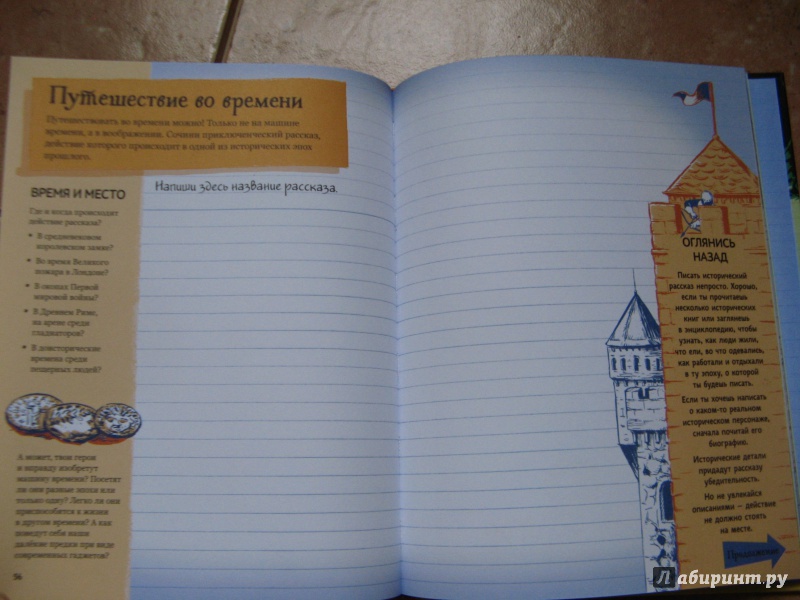 Путешествие во времени
Путешествовать во времени можно! Только не на машине
времени, а в воображении. Сочини приключенческий рассказ,
действие которого происходит в одной из исторических эпох
прошлого.
ВРЕМЯ И МЕСТО
Где и когда происходит
действие рассказа?
• В средневековом
королевском замке?
• Во время Великого
пожара в Лондоне?
• В окопах Первой
мировой войны?
• В Древнем Риме,
на арене среди
гладиаторов?
• В доисторические
времена среди
пещерных людей?
А может, твои герои
и вправду изобретут
машину времени? Посетят
ли они разные эпохи или
только одну? Легко ли они
приспособятся к жизни
в другом времени? А как
поведут себя наши
далёкие предки при виде
современных гаджетов?
56
Напиши здесь название рассказа.
ОГЛЯНИСЬ
НАЗАД
Писать исторический
рассказ непросто. Хорошо,
если ты прочитаешь
несколько исторических
книг или заглянешь
в энциклопедию, чтобы
узнать, как люди жили,
что ели, во что одевались,
как работали и отдыхали
в ту эпоху, о которой
ты будешь писать.
Если ты хочешь написать
о каком-то реальном
историческом персонаже,
сначала почитай его
биографию.
Исторические детали
придадут рассказу
убедительность.
Но не увлекайся
описаниями – действие
не должно стоять
на месте.
Продолжение
Лабиринт.ру